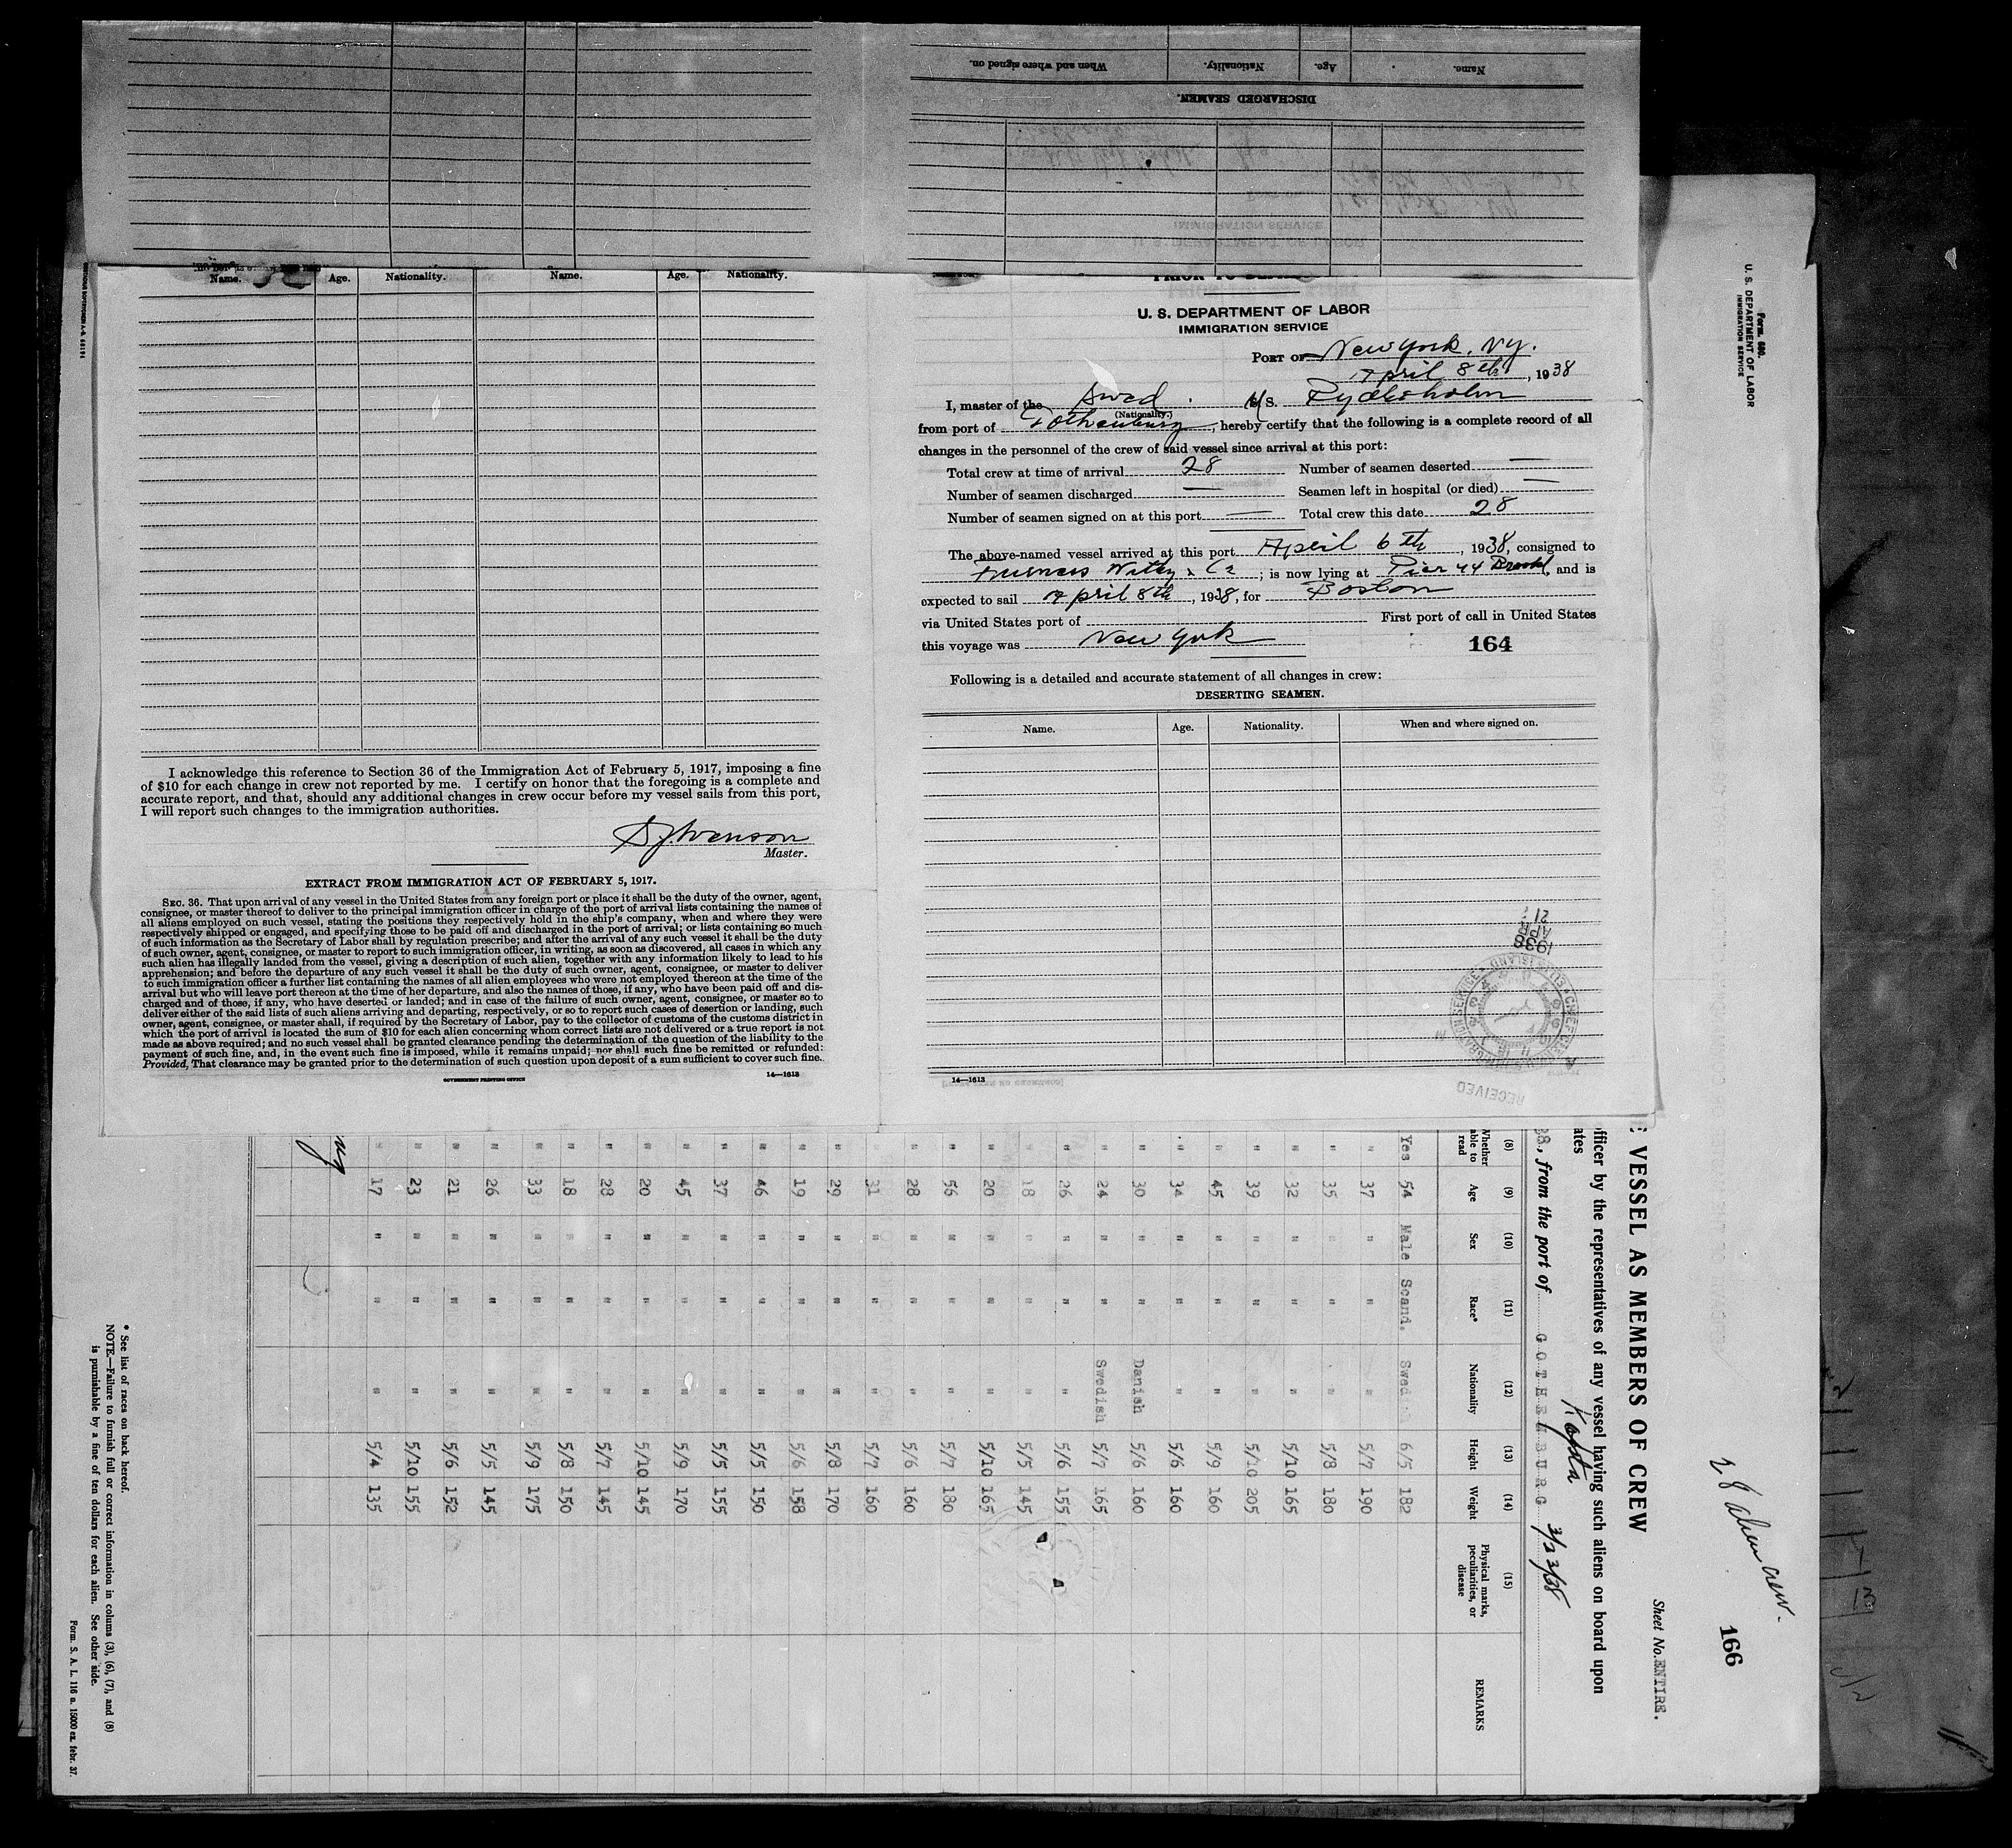 When and where signed on.
Nationality.
Age.
Name.
DISCHARGED SEAMEN.
Name. Age. Nationality. Name. Age. Nationality.
I acknowledge this reference to Section 36 of the Immigration Act of February 5, 1917, imposing a fine
of $10 for each change in crew not reported by me. I certify on honor that the foregoing is a complete and
accurate report, and that, should any additional changes in crew occur before my vessel sails from this port,
I will report such changes to the immigration authorities.
Master.
EXTRACT FROM IMMIGRATION ACT OF FEBRUARY 5, 1917.
SEC. 36. That upon arrival of any vessel in the United States from any foreign port or place it shall be the duty of the owner, agent,
consignee, or master thereof to deliver to the principal immigration officer in charge of the port of arrival lists containing the names of
all aliens employed on such vessel, stating the positions they respectively hold in the ship's company, when and where they were
respectively shipped or engaged, and specifying those to be paid off and discharged in the port of arrival; or lists containing so much
of such information as the Secretary of Labor shall by regulation prescribe; and after the arrival of any such vessel it shall be the duty
of such owner, agent, consignee, or master to report to such immigration officer, in writing, as soon as discovered, all cases in which any
such alien has illegally landed from the vessel, giving a description of such alien, together with any information likely to lead to his
apprehension; and before the departure of any such vessel it shall be the duty of such owner, agent, consignee, or master to deliver
to such immigration officer a further list containing the names of all alien employees who were not employed thereon at the time of the
arrival but who will leave port thereon at the time of her departure, and also the names of those, if any, who have been paid off and dis-
charged and of those, if any, who have deserted or landed; and in case of the failure of such owner, agent, consignee, or master so to
deliver either of the said lists of such aliens arriving and departing, respectively, or so to report such cases of desertion or landing, such
owner, agent, consignee, or master shall, if required by the Secretary of Labor, pay to the collector of customs of the customs district in
which the port of arrival is located the sum of $10 for each alien concerning whom correct lists are not delivered or a true report is not
made as above required; and no such vessel shall be granted clearance pending the determination of the question of the liability to the
payment of such fine, and, in the event such fine is imposed, while it remains unpaid; nor shall such fine be remitted or refunded:
Provided, That clearance may be granted prior to the determination of such question upon deposit of a sum sufficient to cover such fine.
GOVERNMENT PRINTING OFFICE 14—1613
U. S. DEPARTMENT OF LABOR
IMMIGRATION SERVICE
PORT OF New York, NY.
April 8th, 1938
I, master of the Swed. M/S. Rydboholm
(Nationality.)
from port of Gothenburg, hereby certify that the following is a complete record of all
changes in the personnel of the crew of said vessel since arrival at this port:
Total crew at time of arrival 28 Number of seamen deserted —
Number of seamen discharged — Seamen left in hospital (or died) —
Number of seamen signed on at this port — Total crew this date 28
The above-named vessel arrived at this port April 6th, 1938, consigned to
Furness Withy & Co; is now lying at Pier 44 Brookl, and is
expected to sail April 8th, 1938, for Boston
via United States port of First port of call in United States
this voyage was New York
164
Following is a detailed and accurate statement of all changes in crew:
DESERTING SEAMEN.
Name. Age. Nationality. When and where signed on.
1938
APR
21
RECEIVED
14—1613
Form 680.
U. S. DEPARTMENT OF LABOR
IMMIGRATION SERVICE
28 alien crew.
166
Sheet No. ENTIRE.
E VESSEL AS MEMBERS OF CREW
officer by the representatives of any vessel having such aliens on board upon
ates
38, from the port of GOTHENBURG 3/23/38
(8) (9) (10) (11) (12) (13) (14) (15)
Whether able to read Age Sex Race* Nationality Height Weight Physical marks, peculiarities, or disease REMARKS
Yes 54 Male Scand. Swedish 6/5 182
" 37 " " " 5/7 190
" 35 " " " 5/8 180
" 32 " " " 5/10 165
" 39 " " " 5/10 205
" 45 " " " 5/9 160
" 34 " " " 5/6 160
" 30 " " Danish 5/6 160
" 24 " " Swedish 5/7 165
" 26 " " " 5/6 155
" 18 " " " 5/5 145
" 20 " " " 5/10 165
" 56 " " " 5/7 180
" 28 " " " 5/6 160
" 31 " " " 5/7 160
" 29 " " " 5/8 170
" 19 " " " 5/6 158
" 46 " " " 5/5 150
" 37 " " " 5/5 155
" 45 " " " 5/9 170
" 20 " " " 5/10 145
" 28 " " " 5/7 145
" 18 " " " 5/8 150
" 33 " " " 5/9 175
" 26 " " " 5/5 145
" 21 " " " 5/6 152
" 23 " " " 5/10 155
" 17 " " " 5/4 135
* See list of races on back hereof.
NOTE.—Failure to furnish full or correct information in colums (3), (6), (7), and (8)
is punishable by a fine of ten dollars for each alien. See other side.
Form. S. A. L. 116 a. 15000 ex. febr. 37.